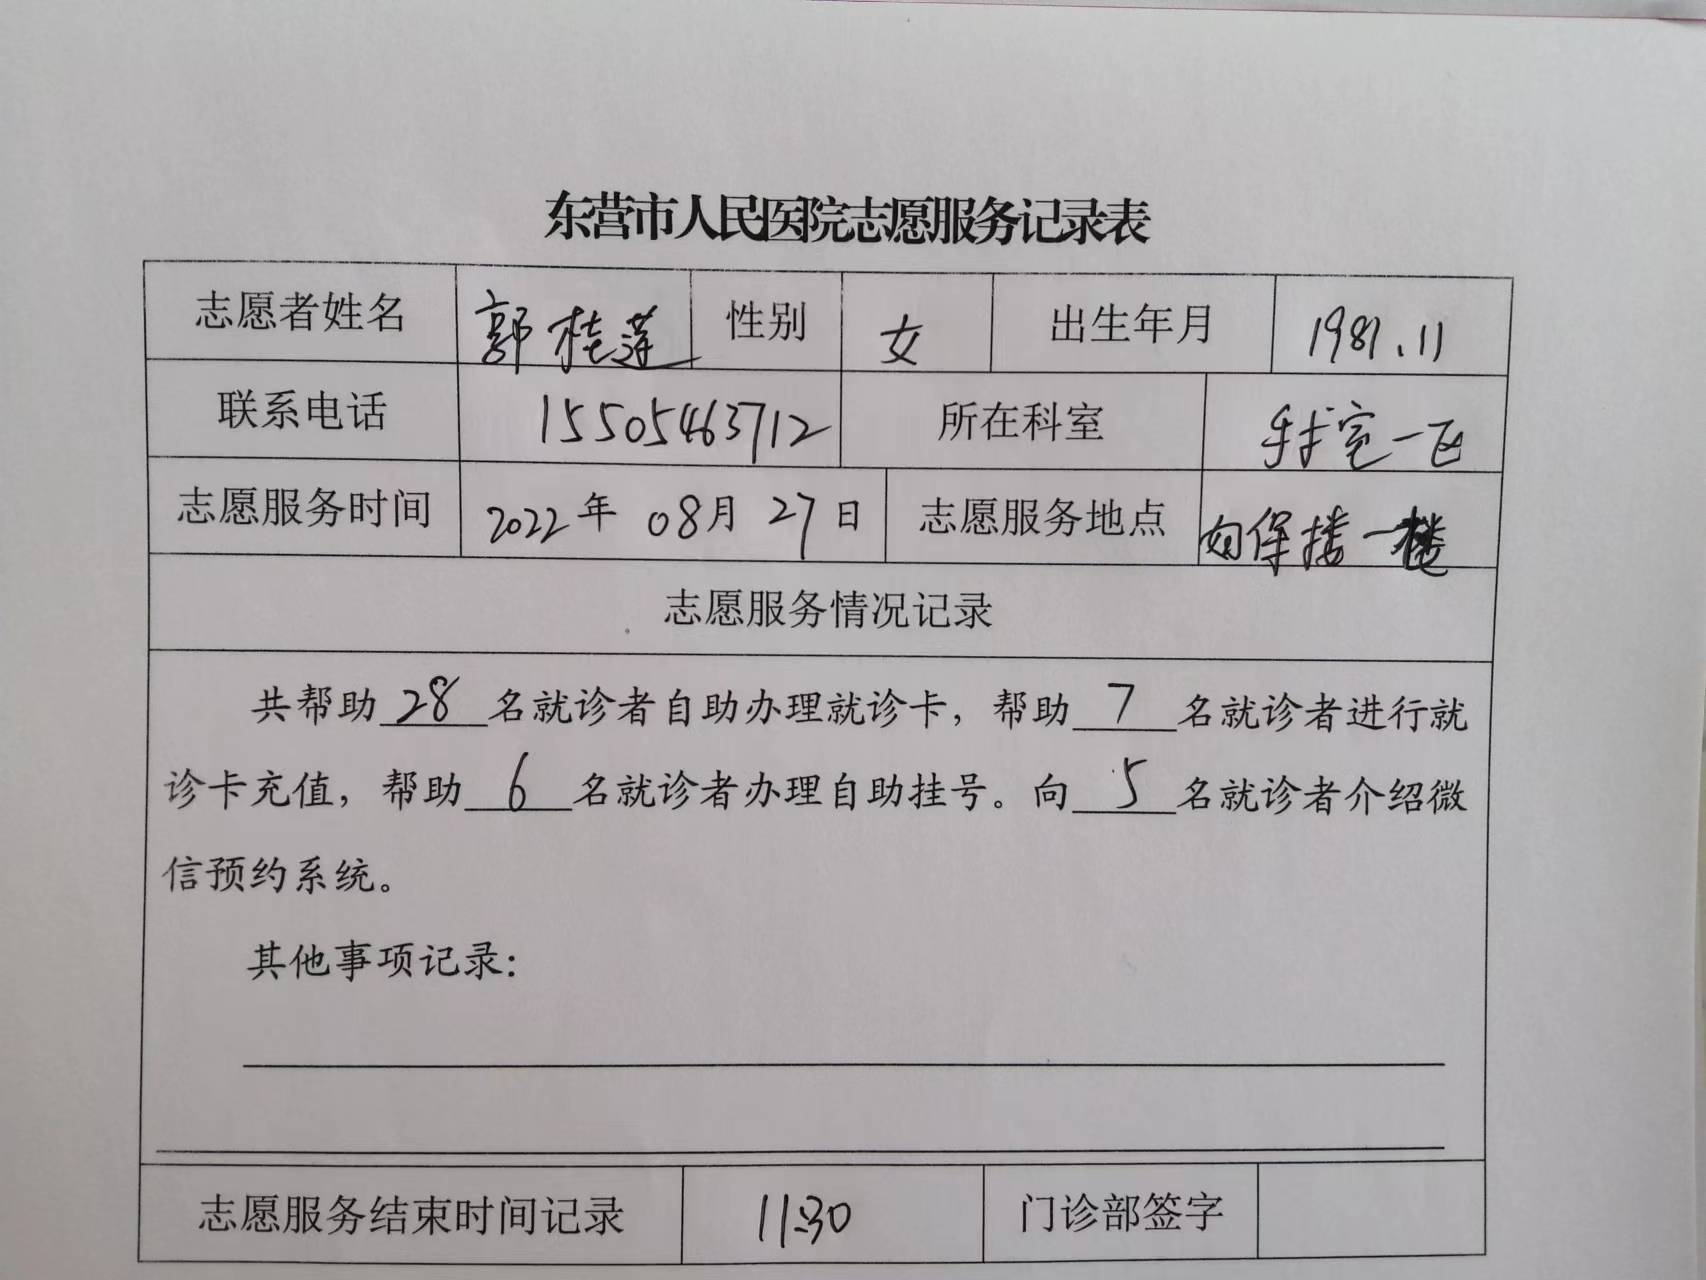 东营市人民医院志愿服务记录表
志愿者姓名 郭桂莲 性别 女 出生年月 1981.11
联系电话 15505463712 所在科室 手术室一区
志愿服务时间 2022年 08月 27日 志愿服务地点 妇保楼一楼
志愿服务情况记录
共帮助28名就诊者自助办理就诊卡，帮助7名就诊者进行就
诊卡充值，帮助6名就诊者办理自助挂号。向5名就诊者介绍微
信预约系统。
其他事项记录：
志愿服务结束时间记录 11:30 门诊部签字